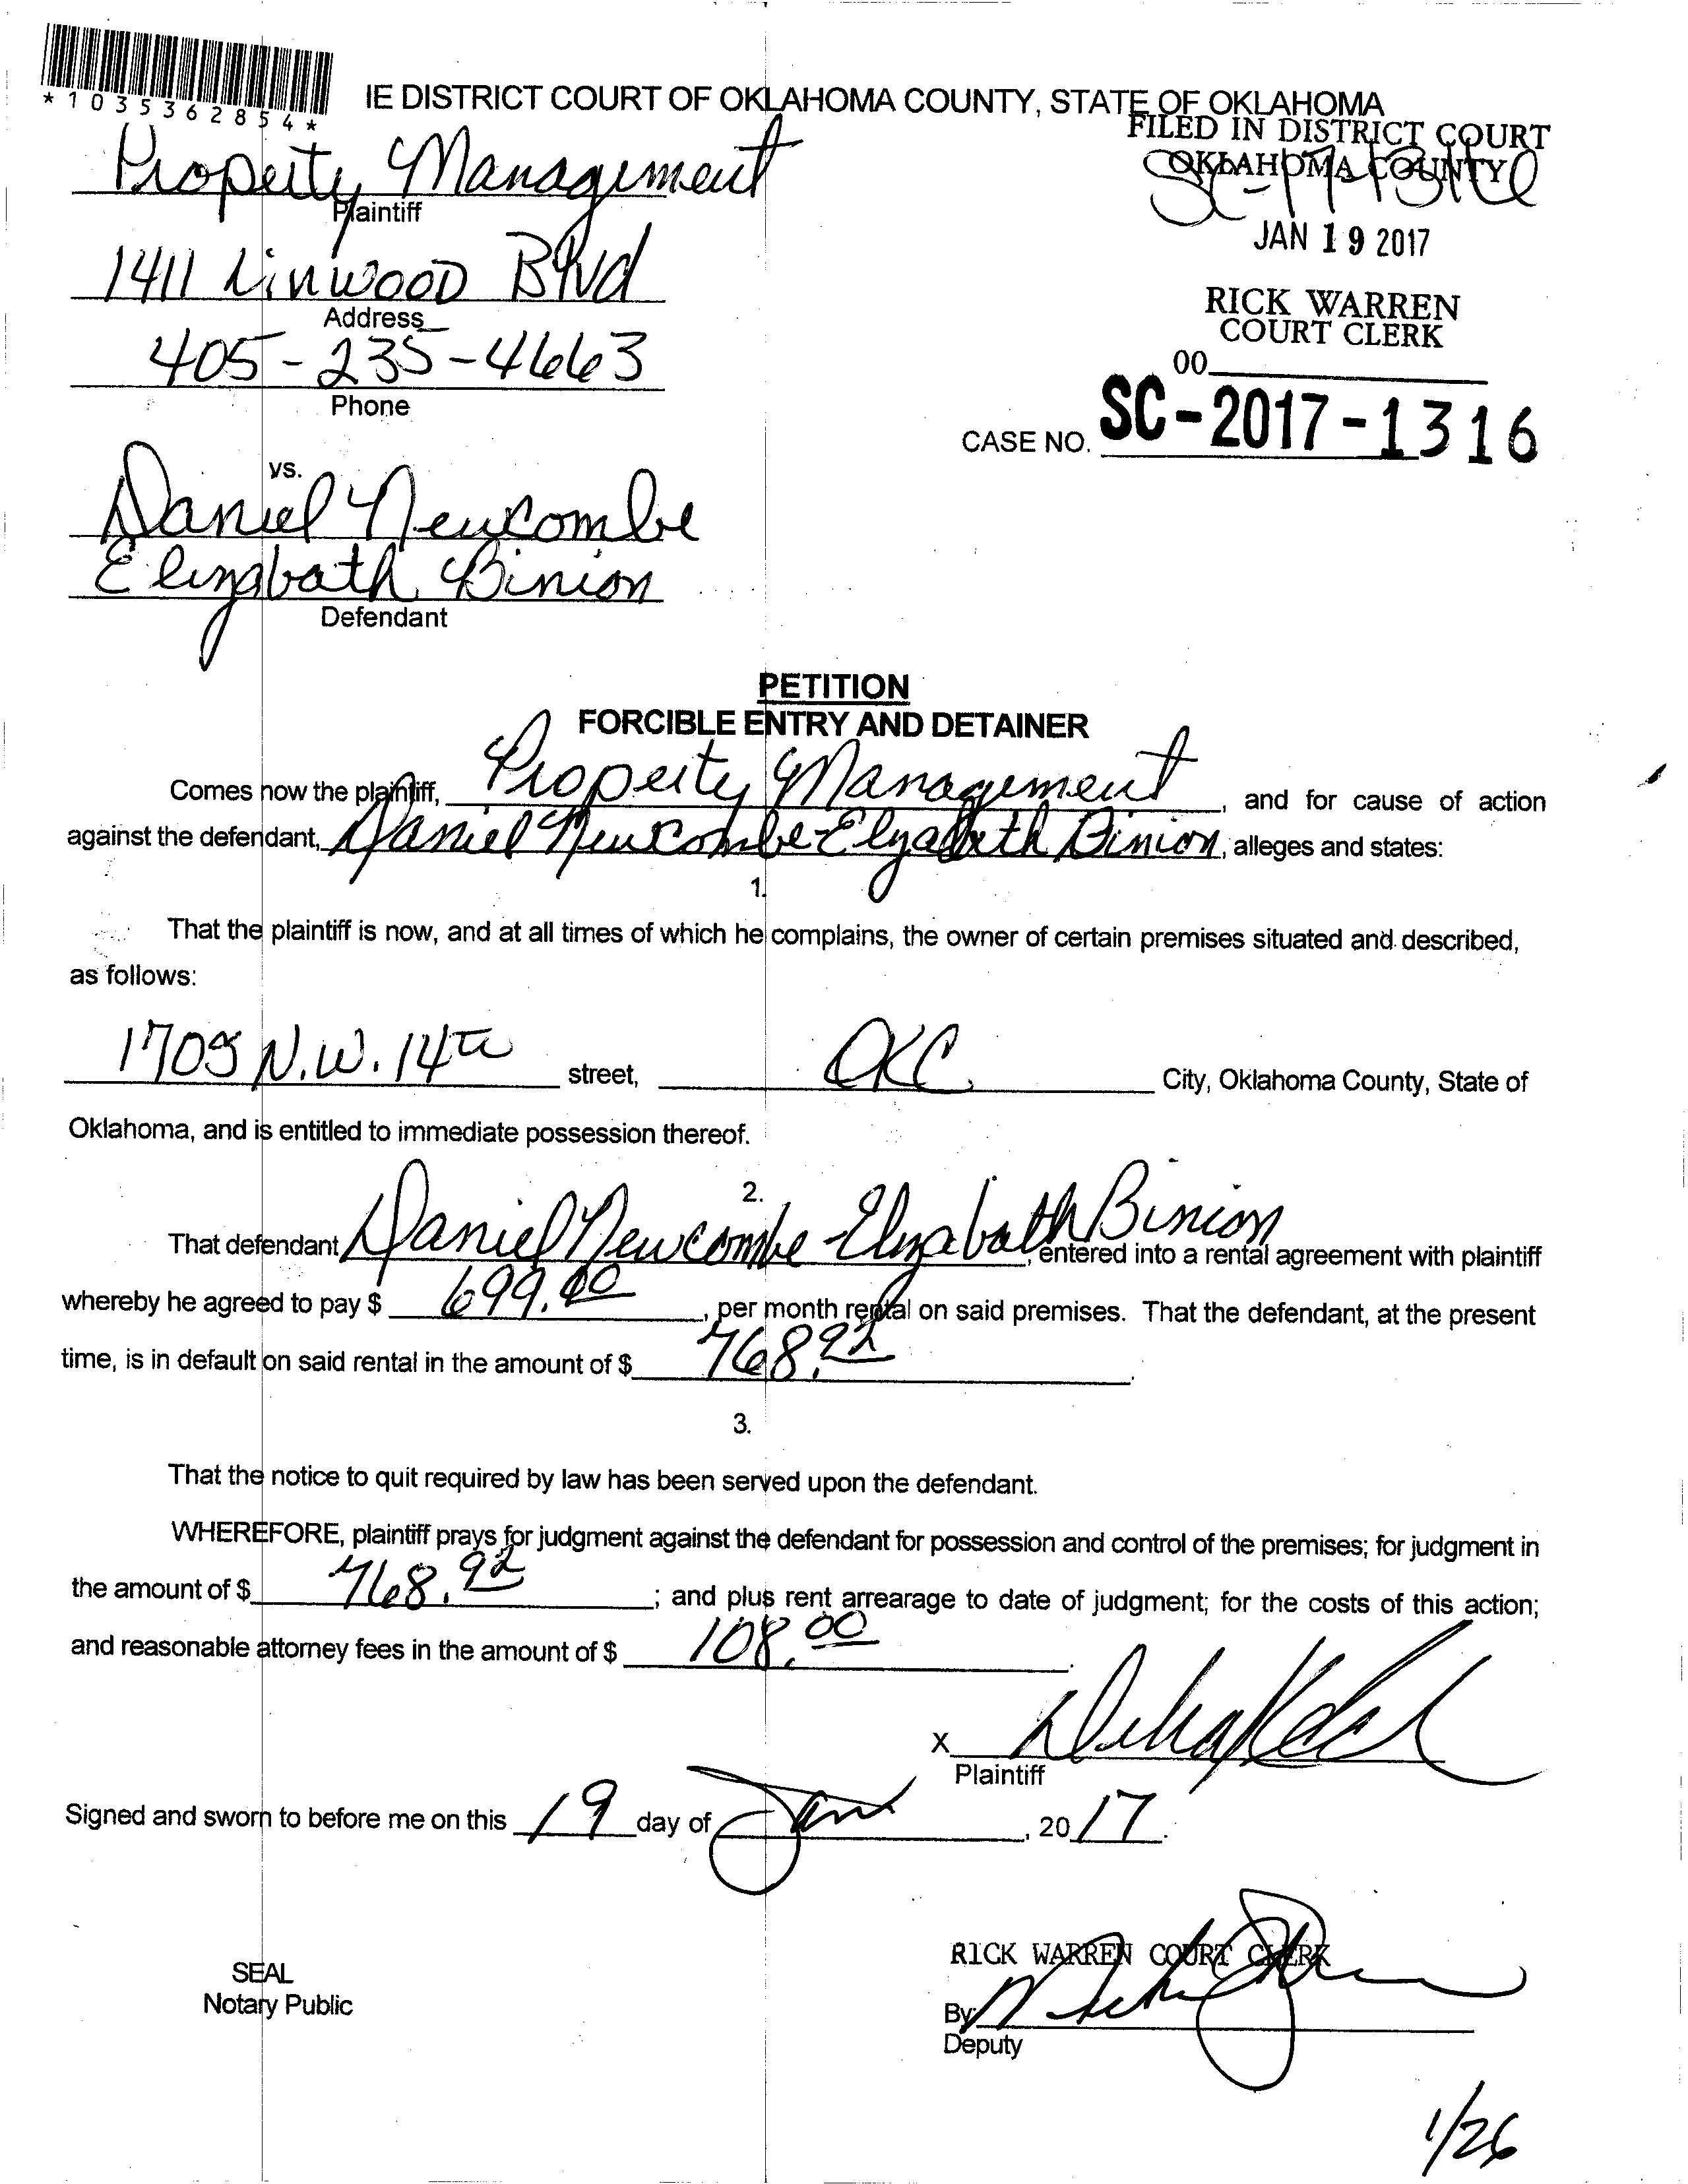 *1035362854*
IE DISTRICT COURT OF OKLAHOMA COUNTY, STATE OF OKLAHOMA
FILED IN DISTRICT COURT
OKLAHOMA COUNTY
Property Management
Plaintiff
JAN 19 2017
1411 Linwood Blvd
Address
RICK WARREN
COURT CLERK
405-235-4663
Phone
00
CASE NO. SC-2017-1316
vs.
Daniel Newcombe
Elizabath Binion
Defendant
PETITION
FORCIBLE ENTRY AND DETAINER
Comes now the plaintiff, Property Management, and for cause of action
against the defendant, Daniel Newcombe-Elyzabeth Binion, alleges and states:
1.
That the plaintiff is now, and at all times of which he complains, the owner of certain premises situated and described,
as follows:
1709 N.W. 14th street, OKC City, Oklahoma County, State of
Oklahoma, and is entitled to immediate possession thereof.
2.
That defendant Daniel Newcombe-Elizabath Binion, entered into a rental agreement with plaintiff
whereby he agreed to pay $ 699.00, per month rental on said premises. That the defendant, at the present
time, is in default on said rental in the amount of $ 768.92.
3.
That the notice to quit required by law has been served upon the defendant.
WHEREFORE, plaintiff prays for judgment against the defendant for possession and control of the premises; for judgment in
the amount of $ 768.92; and plus rent arrearage to date of judgment; for the costs of this action;
and reasonable attorney fees in the amount of $ 108.00.
X
Plaintiff
Signed and sworn to before me on this 19 day of Jan, 2017.
RICK WARREN COURT CLERK
SEAL
Notary Public
By
Deputy
1/26